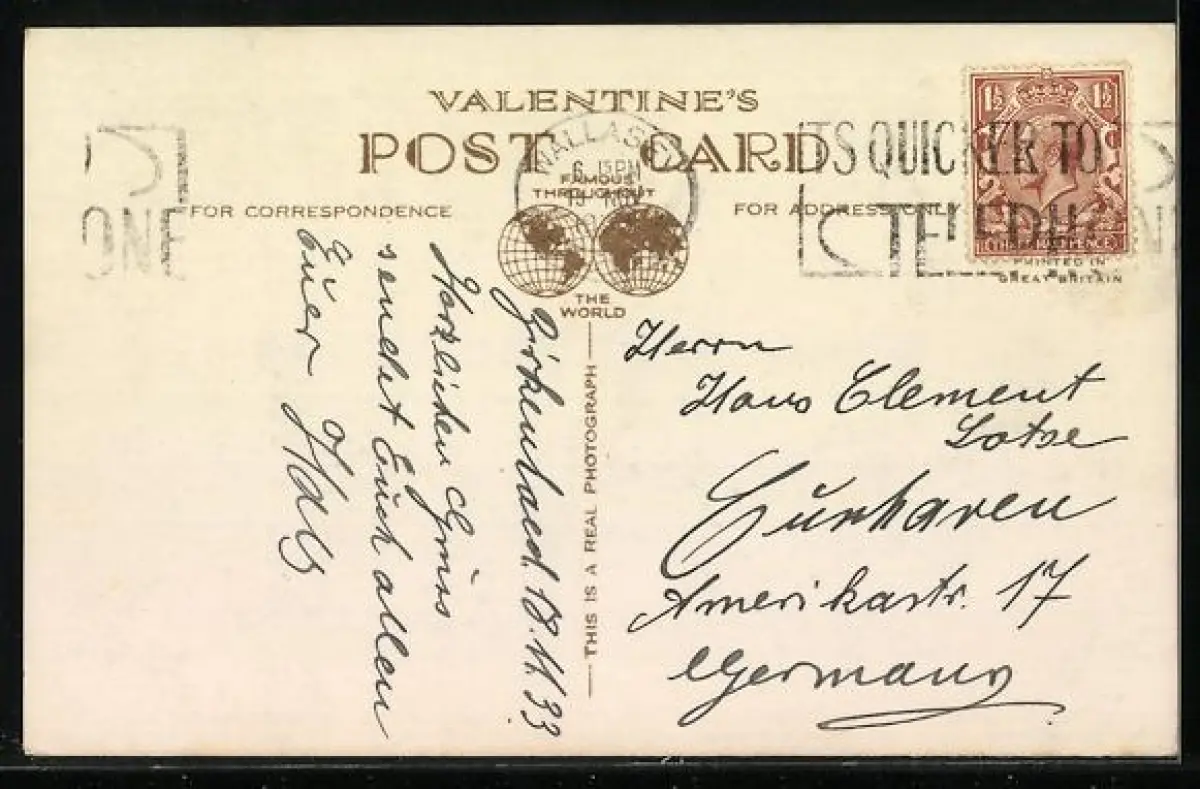 VALENTINE'S
POST CARD
FAMOUS
THROUGHOUT
THE
WORLD
FOR CORRESPONDENCE
FOR ADDRESS ONLY
PRINTED IN
GREAT BRITAIN
THIS IS A REAL PHOTOGRAPH
1½ 1½
THREE HALFPENCE
WALLASEY
6 15 PM
19 NOV
ITS QUICKER TO
TELEPHONE
ONE
33
Herzlichen Gruss
sendet Euch allen
Euer
Herrn
Hans Clement
Lotse
Cuxhaven
Amerikastr. 17
Germany